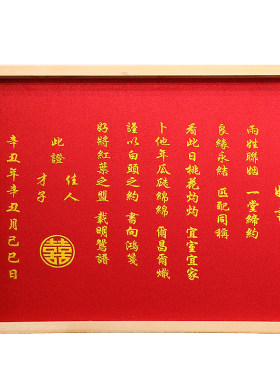 兩姓聯姻 一堂締約
良緣永結 匹配同稱
看此日桃花灼灼 宜室宜家
卜他年瓜瓞綿綿 爾昌爾熾
謹以白頭之約 書向鴻箋
好將紅葉之盟 載明鴛譜
此證
佳人
才子
辛丑年辛丑月己巳日
囍